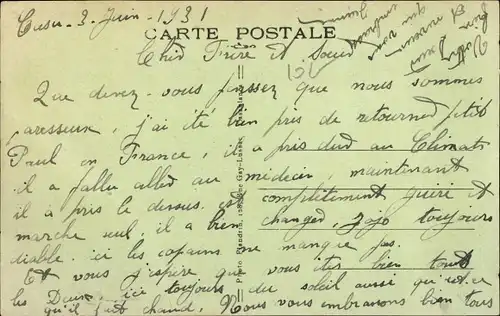 3 - Juin - 1931
CARTE POSTALE
Cher Frère et Soeur
Que devez-vous pensez que nous sommes
paresseux, j'ai été bien pris de retourned petit
Paul en France, il a pris dur au Climat
il a fallu alled au médecin, maintenant
il à pris le dessus. est complètement guéri et
marche seul, il a bien changed, Jojo toujours
diable. ici les copains ne manque pas.
Et vous j'espère que vous êtes bien tout
les Deux. ici toujours du soleil aussi qu'est-ce
qu'il fait chaud, Nous vous embrassons bien tous
Photo Flandrin